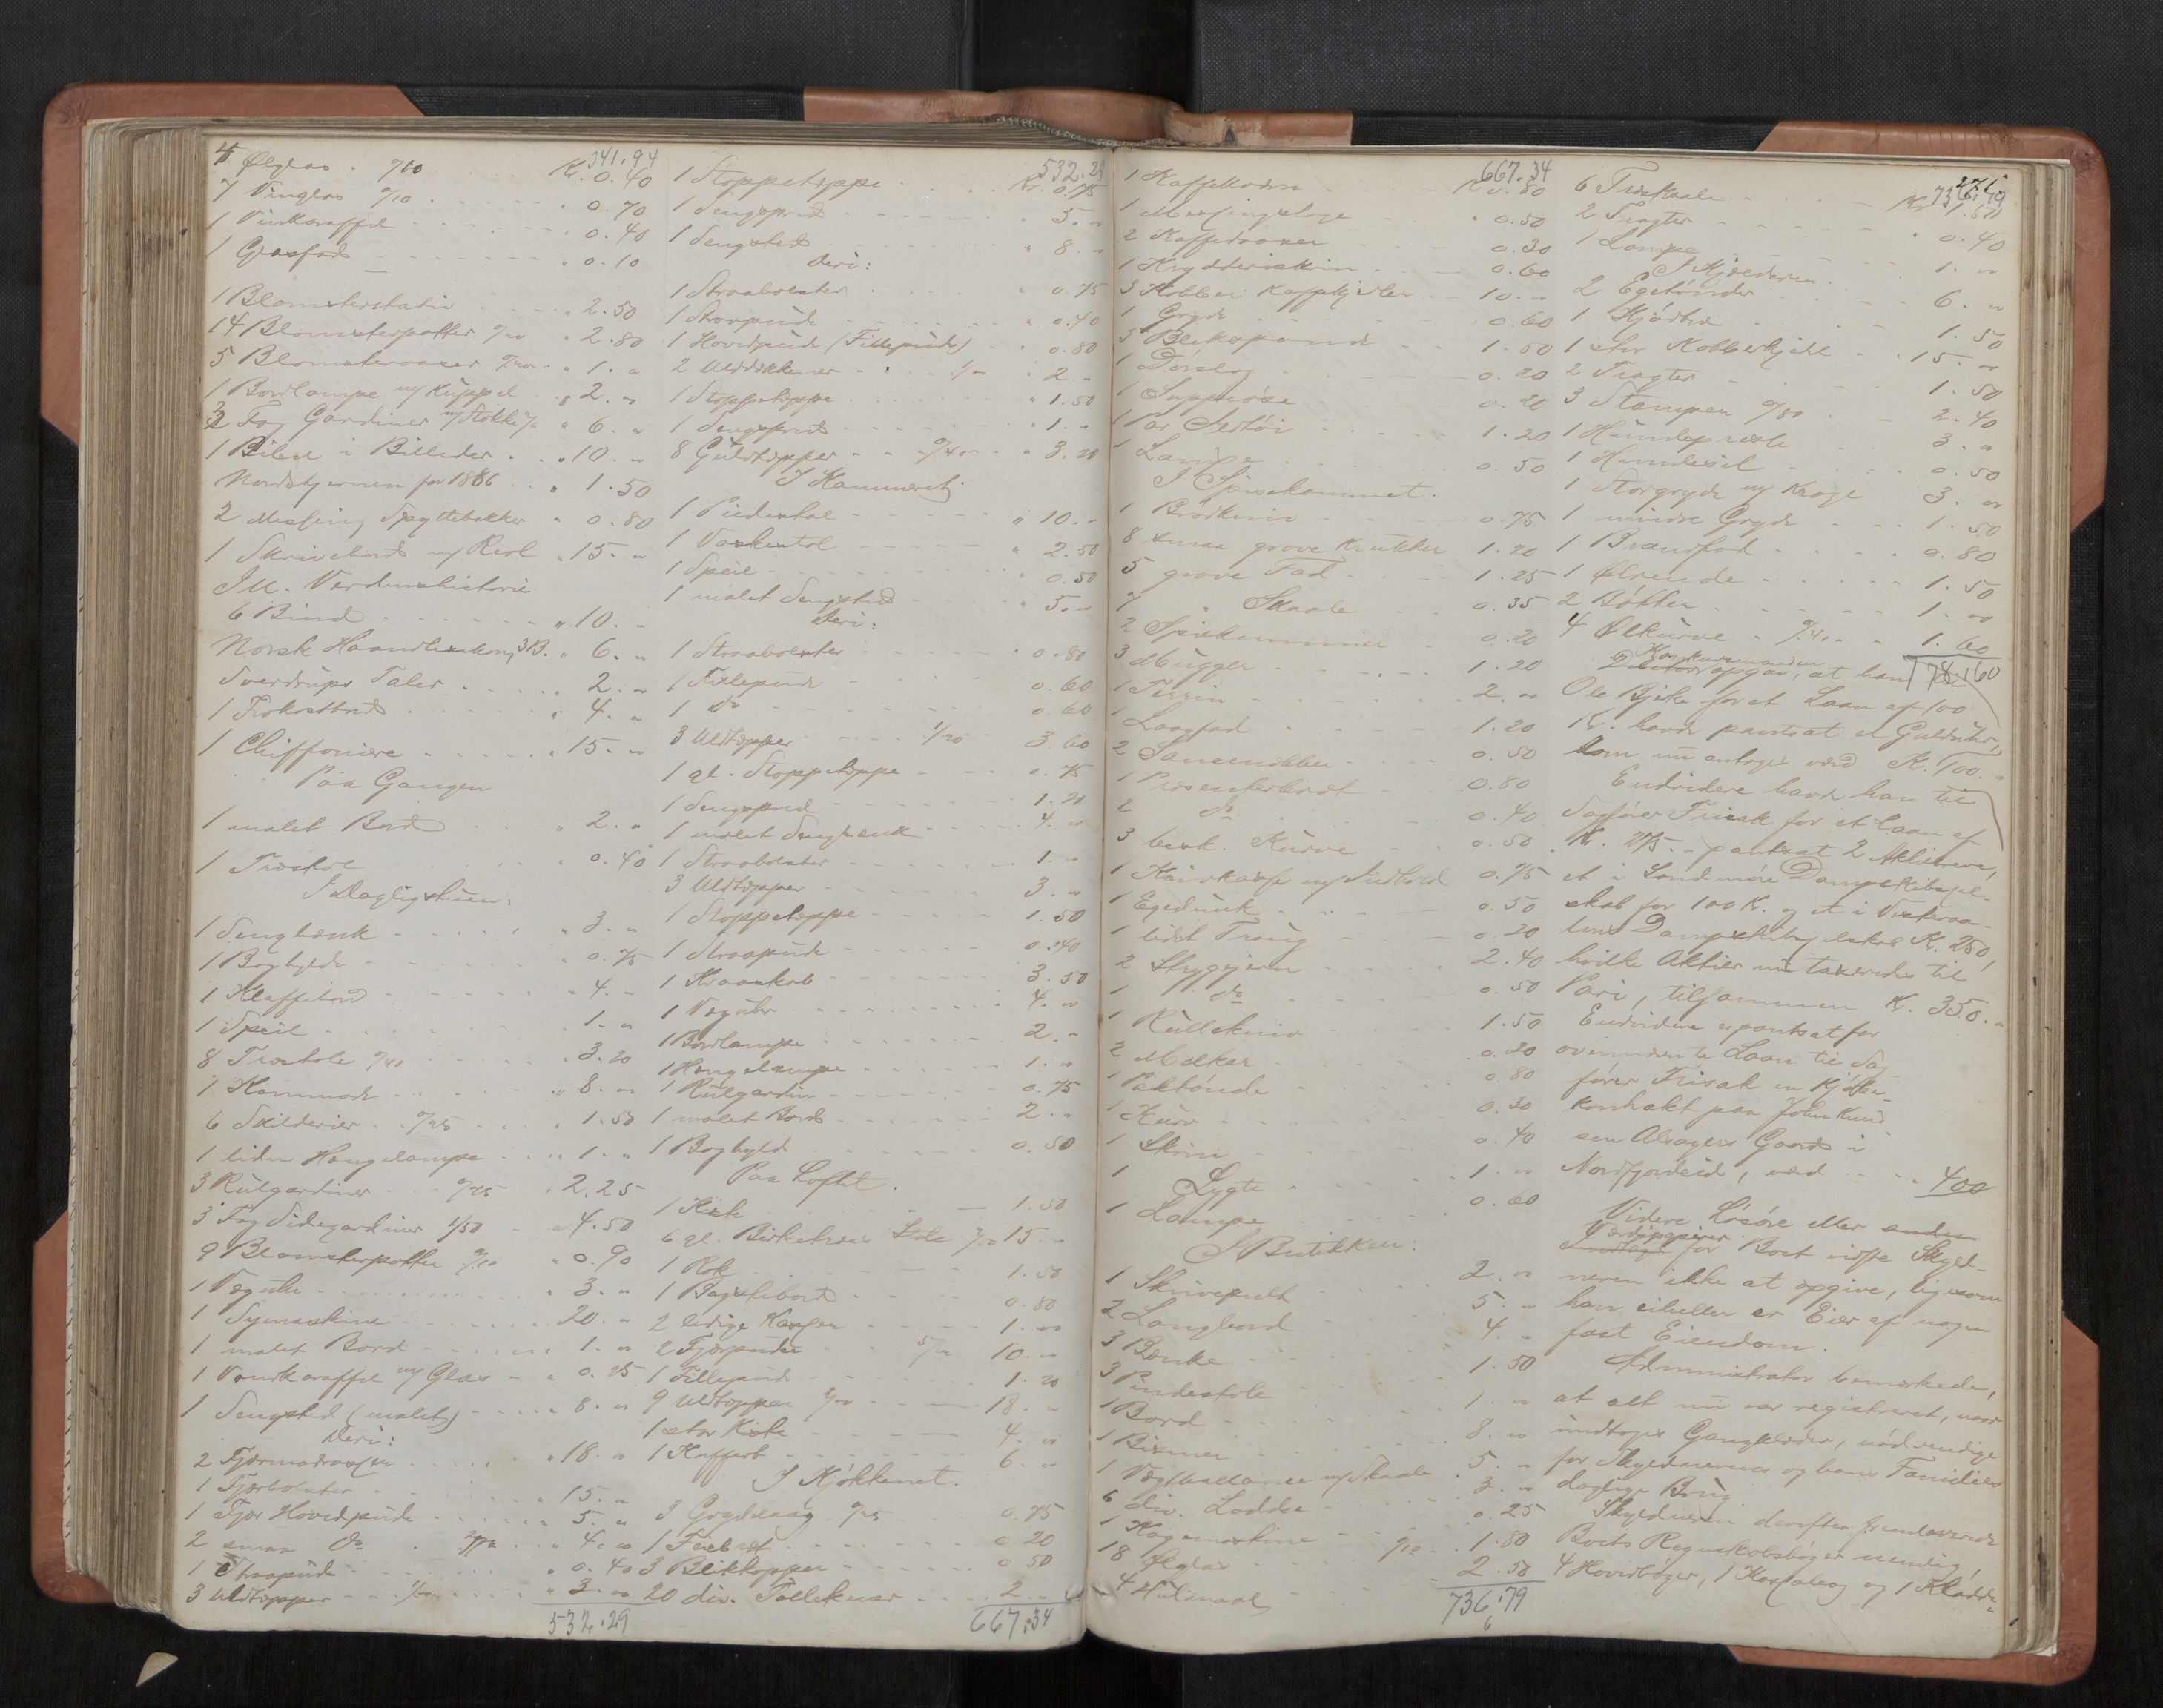 341.94
4 Ølglas . 0/10 Kr. 0.40
7 Vinglas 0/10 " 0.70
1 Vinkaraffel " 0.40
1 Glasfad " 0.10
1 Blomsterstativ " 2.50
14 Blomsterpotter 0/20 " 2.80
5 Blomstervaser 0/20 " 1. "
1 Bordlampe m/ Kuppel " 2. "
3 Fag Gardiner m/ Stokke 2/ " 6. "
1 Bibel i Billeder " 10. "
Nordstjernen for 1886 " 1.50
2 Messing Spyttebakker " 0.80
1 Skrivebord m/ Reol " 15. "
Ill. Verdenshistorie
6 Bind " 10. "
Norsk Haandlexikon, 3 B. " 6. "
Sverdrups Taler " 2. "
1 Frokostbord " 4. "
1 Chiffoniere " 15. "
Paa Gangen
1 malet Bord " 2. "
1 Træstol " 0.40
I Dagligstuen:
1 Sengbænk " 3. "
1 Boghylde " 0.75
1 Klaffebord " 4. "
1 Speil 1. "
8 Træstole 0/40 " 3.20
1 Kommode " 8. "
6 Skilderier 0/25 " 1.50
1 liden Hængelampe " 1. "
3 Rulgardiner 0/75 " 2.25
3 Fag Sidegardiner 1/50 " 4.50
9 Blomsterpotter 0/10 " 0.90
1 Vægur " 3. "
1 Symaskine 20. "
1 malet Bord 1. "
1 Vandkaraffel m/ Glas " 0.25
1 Sengsted (malet) " 8. "
Deri:
2 Fjærmadrasser " 18. "
1 Fjærbolster " 15. "
1 Fjær Hovedpude " 5. "
2 smaa Do " 4. "
1 Straapude " 0.40
3 Uldtæpper 1/00 " 3. "
532.29
532.29
1 Stoppetæppe Kr. 0.75
1 Sengspred " 5. "
1 Sengsted " 8. "
Deri:
1 Straabolster " 0.75
1 Straapude " 0.40
1 Hovedpude (Fillepude) " 0.80
2 Uldtækkener 1/00 " 2 "
1 Stoppetæppe " 1.50
1 Sengspred " 1. "
8 Gulvtæpper 0/40 " 3.20
I Kammerset
1 Piedestal " 10. "
1 Vaskestol " 2.50
1 Speil " 0.50
1 malet Sengsted " 5. "
Deri:
1 Straabolster " 0.80
1 Fillepude 0.60
1 do 0.60
3 Uldtæpper 1/20 3.60
1 gl. Stoppetæppe 0.75
1 Sengspred 1.20
1 malet Sengbænk 4. "
1 Straabolster 1. "
3 Uldtæpper 3. "
1 Stoppetæppe 1.50
1 Straapude 0.40
1 Kraaskab 3.50
1 Vægur 4. "
1 Bordlampe 2. "
1 Hængelampe 1. "
1 Rulgardin 0.75
1 malet Bord 2. "
1 Boghyld 0.50
Paa Loftet.
1 Kiste 1.50
6 gl. Birketræs Stole 2/50 15. "
1 Rok 1.50
1 Bagstebord 0.80
2 ledige Kasser 1. "
2 Fjærpuder 5/00 10. "
1 Fillepude 1.20
9 Uldtæpper 2/00 18. "
1 stor Kiste 4. "
1 Kuffert 6. "
I Kjøkkenet.
3 Grydelaag 0/25 0.75
1 Fiebræt 0.20
3 Blikkopper 0.50
20 div. Tallerkener 2. "
667.34
667.34
1 Kaffekværn Kr. 0.80
1 Messingstage " 0.50
2 Kaffedaaser 0.30
1 Krydderiskrin 0.60
3 Kobber Kaffekjedler 10. "
1 Gryde 0.60
5 Blikspande 1.50
1 Dørslag 0.20
1 Suppeøse 0.20
1 Par Sertøi 1.20
1 Lampe 0.50
I Spisekammet.
1 Brødkniv 0.75
8 smaa grove Krukker 1.20
5 grove Fad 1.25
7 " Skaale 0.35
2 Spilkummer 0.20
3 Mugger 1.20
1 Terrin 2. "
1 Laagfad 1.20
2 Saucenebber 0.50
1 Præsenterbræt 0.80
2 Do 0.40
3 besk. Kurve 0.50
1 Knivkasse m/ Indhold 0.75
1 Egedunk 0.50
1 lidet Traug 0.20
2 Strygejern 2.40
1 do 0.50
1 Rulleskniv 1.50
2 Melkar 0.20
1 Saltønde 0.80
1 Kurv 0.30
1 Skrin 0.40
1 Lygte 1. "
1 Lampe 0.60
I Butikken:
1 Skrivepult 2. "
2 Langbord 5. "
3 Bænke 4. "
3 Pindestole 1.50
1 Bord 1. "
1 Bismer 8. "
1 Vægtballance m/ Skaale 5. "
6 div. Lodder 3. "
1 Kogemaskine 0.25
18 Ølglas 0/10 1.80
4 Hulmaal 2.50
736.79
271
736.79
6 Træskaale Kr. 1.50
2 Tragter " 0.40
1 Lampe 1. "
I Kjælderen.
2 Egetønder 6. "
1 Kjødtræ 1.50
1 stor Kobberkjedel 15. "
2 Tragter 1.50
3 Stamper 0/80 2.40
1 Hundepræste 3. "
1 Hundesel 0.50
1 Storgryde m/ Krage 3. "
1 mindre Gryde 1.50
1 Brandfad 0.80
1 Ølrende 1.50
2 Bøtter 1. "
4 Ølkurve 0/40 1.60
778.60
Konkursmanden
opgav, at han til
Ole Kjike for et Laan af 100
Kr. havde pantsat et Guldur,
som nu antoges værd Kr. 100. "
Endvidere havde han til
Sagfører Frisak for et Laan af
Kr. 275 . " pantsat 2 Aktiebreve,
et i Søndmøre Dampskibssel-
skab for 100 K. og et i Vesteraa-
lens Dampskibsselskab Kr. 250,
hvilke Aktier nu taxeredes til
Pari, tilsammen Kr. 350. "
Endvidere er pantsat for
ovennævnte Laan til Sag-
fører Frisak en Kjøbe-
kontrakt paa John Knud
sen Alsagers Gaard i
Nordfjordeid, værd 400
Videre Løsøre eller anden
Værdipapirer
for Boet vidste Skyld-
neren ikke at opgive, ligesom
han eiheller er Eier af nogen
fast Eiendom.
Administrator bemærkede,
at alt nu var registreret, naar
undtages Gangklæder, nødvendige
for Skyldneren og hans Families
daglige Brug.
Skyldneren derefter fremleverede
Boets Regnskabsbøger nemlig
4 Hovedbøger, 1 Kassabog og 1 Kladde-